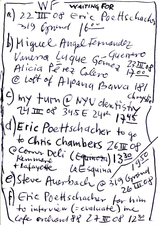 WF WAITING FOR
a) 22 III 08 Eric Poettschacher
319 Grand 16
b) Miguel Angel Fernandez
Vanessa Luque Gomez
Alicia Pérez Calero 22 III 08 17
@ Loft of Alpana Bawa 181 Chrystie
c) my turn @ NYU dentistry
24 III 08 345 E 24th 17 45
d) Eric Poettschacher to go
to chris chambers 26 III 08
@ Corner Deli 13 30
Kenmare
Lafayette La Esquina
e) Steve Auerbach @ 319 Grand
26 III 08
f) Eric Poettschacher for him
to interview (= evaluate) me
Life orchard 88 27 III 08 12 30